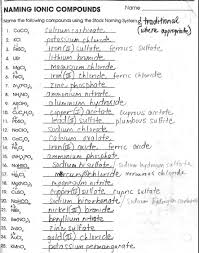 NAMING IONIC COMPOUNDS
Name the following compounds using the Stock Naming System & traditional
(where appropriate)
1. CaCO₃ calcium carbonate
2. KCl potassium chloride
3. iron(II) sulfate ferrous sulfate
4. LiBr lithium bromide
5. MgCl₂ magnesium chloride
6. FeCl₃ iron(III) chloride ferric chloride
7. zinc phosphate
8. NH₄NO₃ ammonium nitrate
9. Al(OH)₃ aluminum hydroxide
10. copper(I) acetate cuprous acetate
11. lead(II) sulfite plumbous sulfite
12. sodium chlorate
13. calcium oxalate
14. Fe₂O₃ iron(III) oxide ferric oxide
15. (NH₄)₃PO₄ ammonium phosphate
16. NaHSO₄ sodium hydrogen sulfate
17. Hg₂Cl₂ mercury(I) chloride mercurous chloride
18. magnesium nitrate
19. CuSO₄ copper(II) sulfate cupric sulfate
20. NaHCO₃ sodium bicarbonate / sodium hydrogen carbonate
21. NiBr₃ nickel(III) bromide
22. beryllium nitrate
23. ZnSO₄ zinc sulfate
24. AuCl₃ gold(III) chloride
25. KMnO₄ potassium permanganate